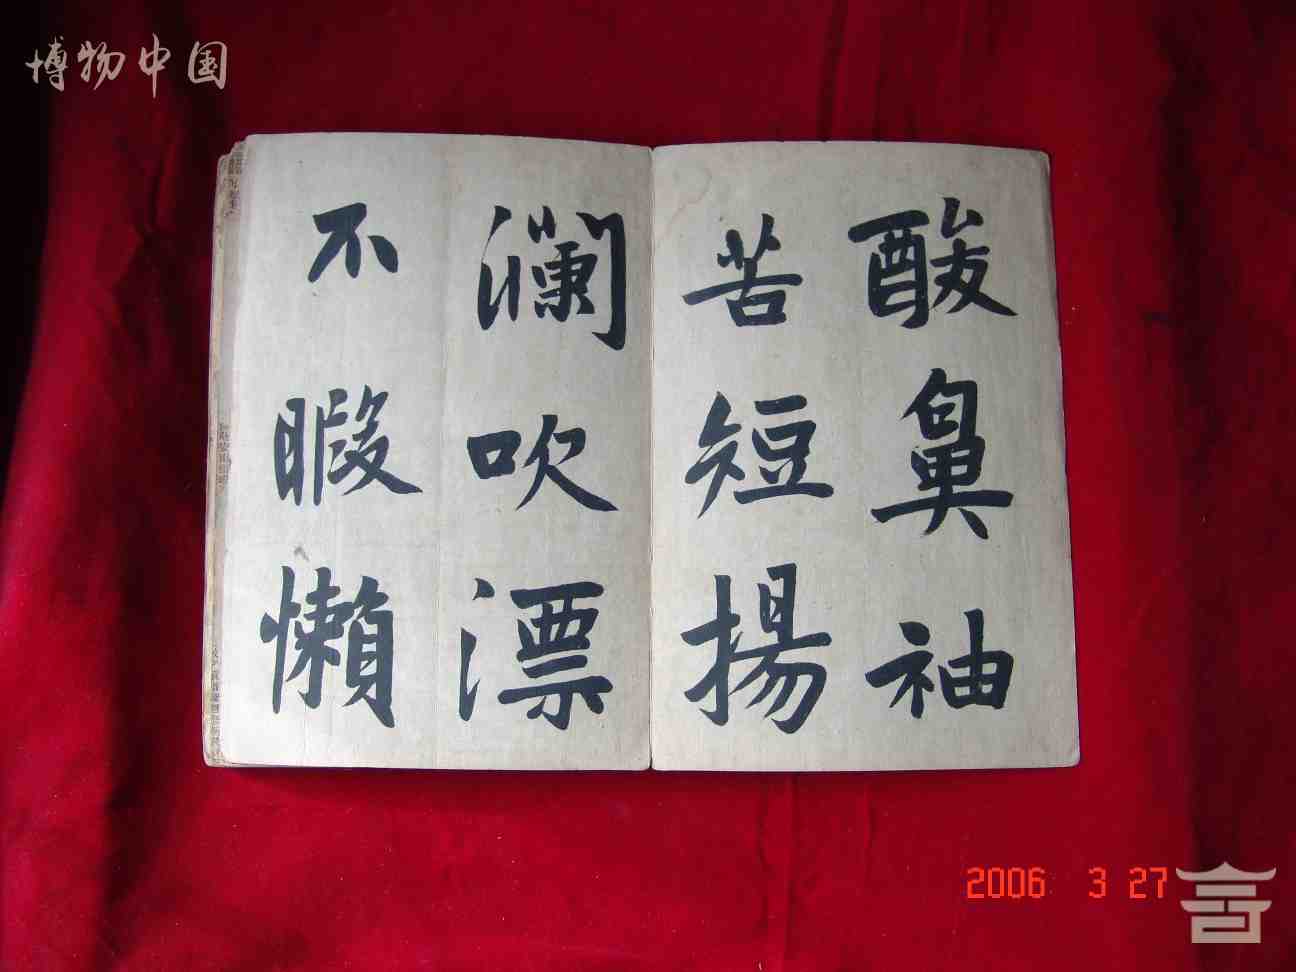 博物中国
酸鼻袖
苦短揚
瀾吹漂
不暇懶
2006 3 27